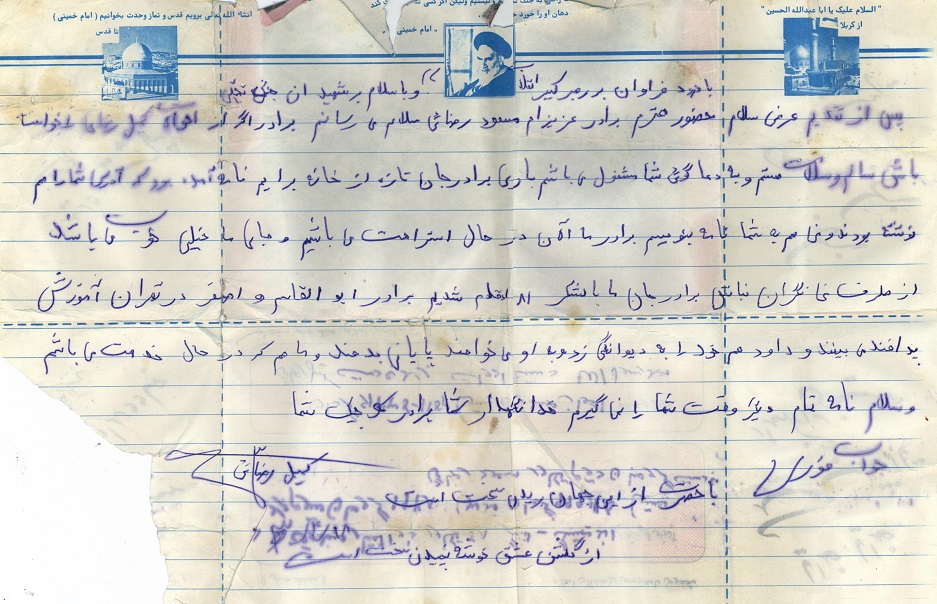 انشاء الله تعالی برویم قدس و نماز وحدت بخوانیم ( امام خمینی )
تا قدس
دهان او را خورد
« امام خمینی »
" السلام علیک یا ابا عبدالله الحسین "
از کربلا
با درود فراوان بر رهبر کبیر انقلاب و با سلام بر شهیدان
پس از تقدیم عرض سلام حضور محترم برادر عزیزم مسعود رضائی سلام می رسانم برادر اگر از
باشی سالم و سلامت هستم و به دعا گوئی شما مشغول می باشم باری برادر جان تازه از خانه برایم نامه آمده بود که آدرس شما را هم
نوشته بودند و من هم به شما نامه بنویسم برادر ما الآن در حال استراحت می باشیم و جای ما خیلی خوب می باشد
از طرف ما نگران نباش برادر جان ما با لشکر ادغام شدیم برادر ابوالقاسم و اصغر در تهران آموزش
پدافندی بینند و داود هم خود را به دیوانگی زده به او می خواهند پایانی بدهند و ما هم که در حال خدمت می باشم
وسلام نامه تمام دیگر وقت شما را نمی گیرم خدا نگهدار شما برادر کوچک شما
جواب فوری
رضائی
با حسرت از این جهان بریدن سخت است
از گلشن عشق خوشه چیدن سخت است